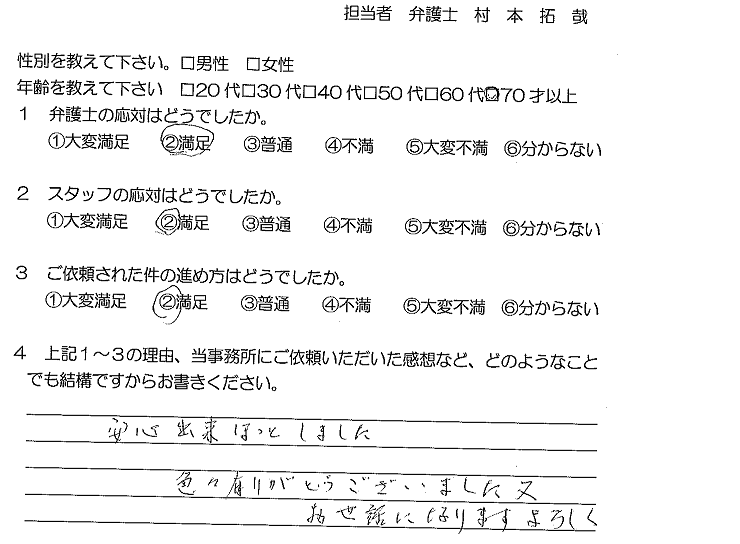 担当者 弁護士 村 本 拓 哉
性別を教えて下さい。□男性 □女性
年齢を教えて下さい □20代□30代□40代□50代□60代□70才以上
1 弁護士の応対はどうでしたか。
①大変満足 ②満足 ③普通 ④不満 ⑤大変不満 ⑥分からない
2 スタッフの応対はどうでしたか。
①大変満足 ②満足 ③普通 ④不満 ⑤大変不満 ⑥分からない
3 ご依頼された件の進め方はどうでしたか。
①大変満足 ②満足 ③普通 ④不満 ⑤大変不満 ⑥分からない
4 上記1～3の理由、当事務所にご依頼いただいた感想など、どのようなこと
でも結構ですからお書きください。
安心出来ほっとしました
色々有りがとうございました又
お世話になりますよろしく